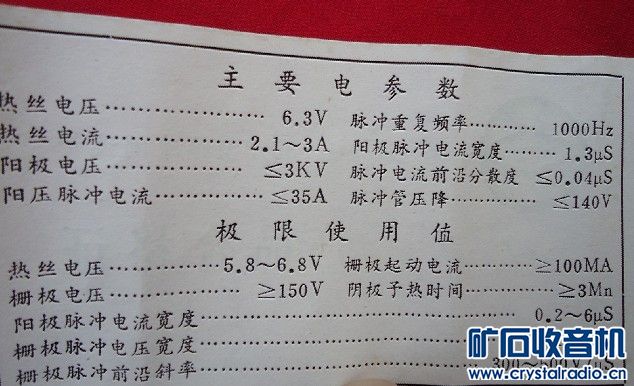 主要电参数
热丝电压……………………6.3V 脉冲重复频率…………1000Hz
热丝电流……………2.1～3A 阳极脉冲电流宽度………1.3μS
阳极电压………………≤3KV 脉冲电流前沿分散度 ≤0.04μS
阳压脉冲电流…………≤35A 脉冲管压降…………≤140V
极限使用值
热丝电压…………5.8～6.8V 栅极起动电流………≥100MA
栅极电压……………≥150V 阴极予热时间………≥3Mn
阳极脉冲电流宽度……………………0.2～6μS
栅极脉冲电压宽度……………………
栅极脉冲前沿斜率……………………
矿石收音机
www.crystalradio.cn